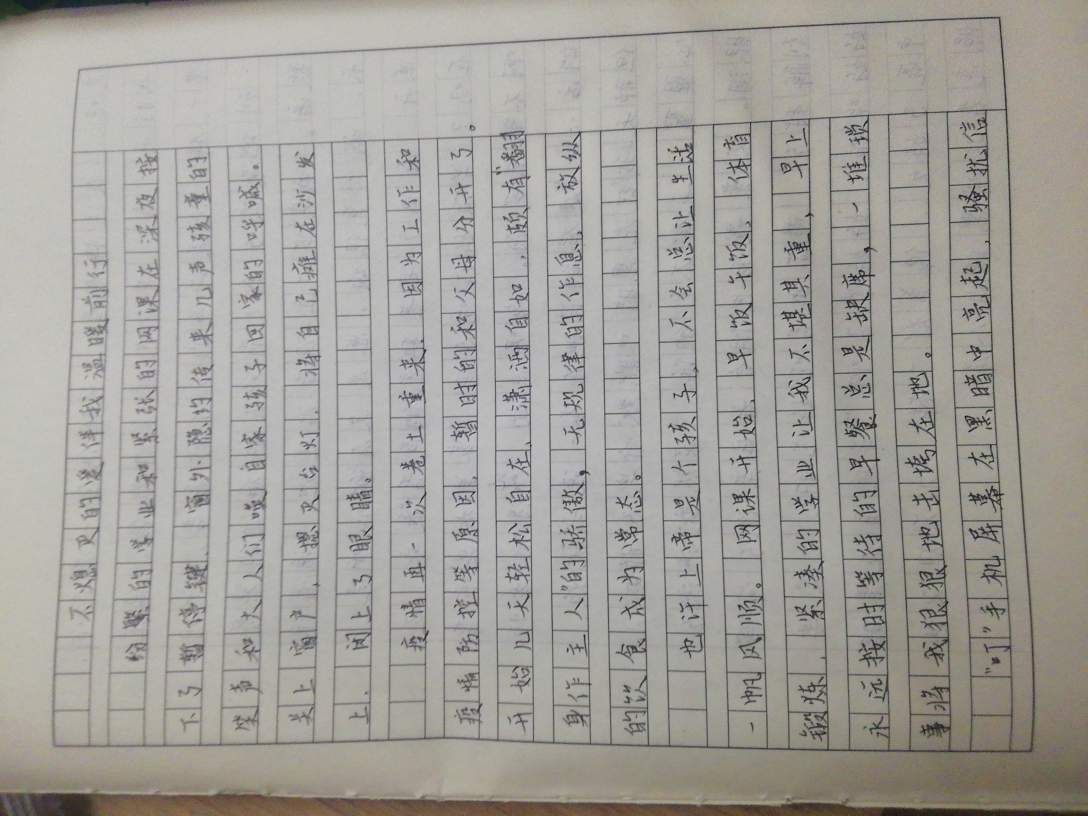 不熄灭的爱伴我温暖前行
纷繁的学业和紧张的网课在深夜按
下了暂停键，窗外隐约传来几声孩童的
笑声和大人们唤自家孩子回家的呼喊。
关上窗户，摁灭台灯，将自己瘫在沙发
上，闭上了眼睛。
疫情再一次卷土重来，因为工作和
疫情防控等原因，暂时的和父母分开了。
开始几天轻松自在，潇洒自如，颇有“翻
身作主人”的骄傲，无规律的作息，放纵
的饮食成为常态。
也许上帝是个孩子，不会总让生活
一帆风顺。网课开始，早饭午饭，体育
锻炼，紧凑的学业让我不堪其重，早上
永远按时等待的早餐总是缺席，一堆琐
事将我狠狠地击垮在地。
“叮”手机屏幕在黑暗中亮起，骚扰信